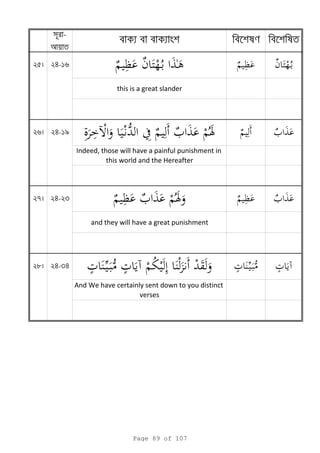 সূরা-
আয়াত
বাক্য বা বাক্যাংশ বিশেষণ বিশেষিত
২৫। ২৪-১৬ هَٰذَا بُهْتَانٌ عَظِيمٌ عَظِيمٌ بُهْتَانٌ
this is a great slander
২৬। ২৪-১৯ لَهُمْ عَذَابٌ أَلِيمٌ فِي الدُّنْيَا وَالْآخِرَةِ أَلِيمٌ عَذَابٌ
Indeed, those will have a painful punishment in
this world and the Hereafter
২৭। ২৪-২৩ وَلَهُمْ عَذَابٌ عَظِيمٌ عَظِيمٌ عَذَابٌ
and they will have a great punishment
২৮। ২৪-৩৪ وَلَقَدْ أَنْزَلْنَا إِلَيْكُمْ آيَاتٍ مُّبَيِّنَاتٍ مُّبَيِّنَاتٍ آيَاتٍ
And We have certainly sent down to you distinct
verses
Page 89 of 107